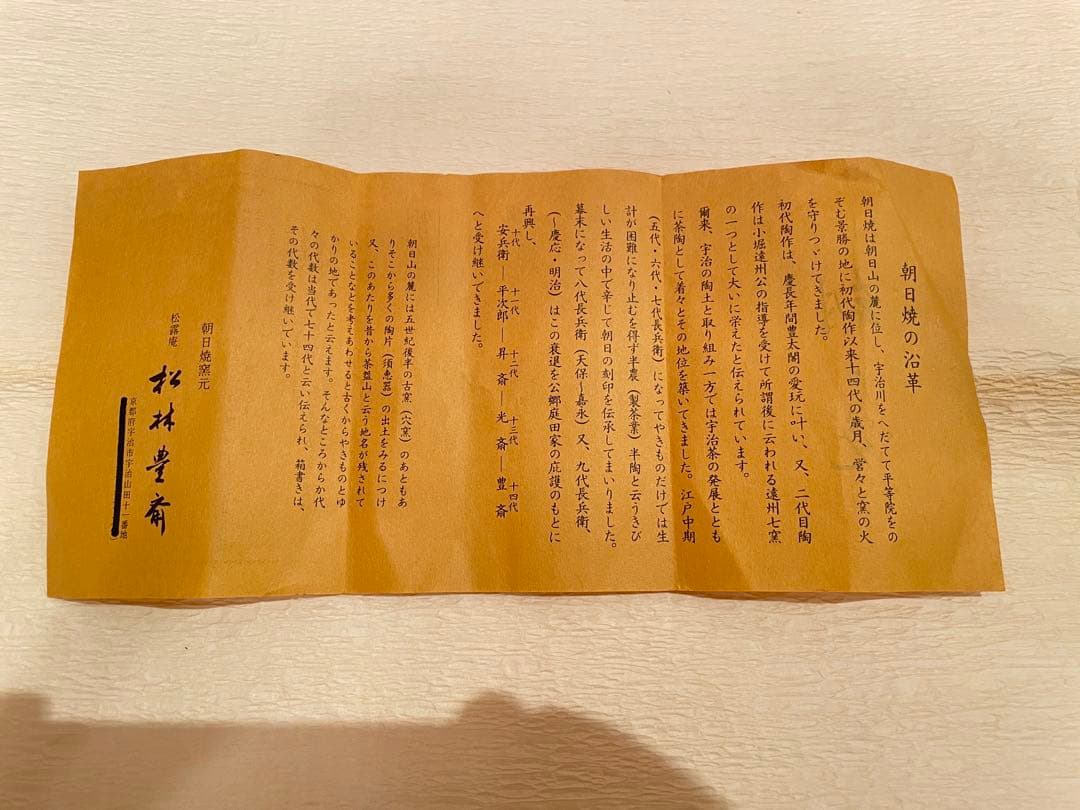 朝日焼の沿革
朝日焼は朝日山の麓に位し、宇治川をへだてて平等院をの
ぞむ景勝の地に初代陶作以来十四代の歳月、営々と窯の火
を守りつゞけてきました。
初代陶作は、慶長年間豊太閤の愛玩に叶い、又、二代目陶
作は小堀遠州公の指導を受けて所謂後に云われる遠州七窯
の一つとして大いに栄えたと伝えられています。
爾来、宇治の陶土と取り組み一方では宇治茶の発展ととも
に茶陶として着々とその地位を築いてきました。江戸中期
(五代・六代・七代長兵衛)になってやきものだけでは生
計が困難になり止むを得ず半農(製茶業)半陶と云うきび
しい生活の中で辛じて朝日の刻印を伝承してまいりました。
幕末になって八代長兵衛(天保〜嘉永)又、九代長兵衛、
(〜慶応・明治)はこの衰退を公郷庭田家の庇護のもとに
再興し、
十代 十一代 十二代 十三代 十四代
安兵衛―平次郎―昇斎―光斎―豊斎
へと受け継いできました。
朝日山の麓には五世紀後半の古窯(穴窯)のあともあ
りそこから多くの陶片(須恵器)の出土をみるにつけ
又、このあたりを昔から茶盌山と云う地名が残されて
いることなどを考えあわせると古くからやきものとゆ
かりの地であったと云えます。そんなところからか代
々の代数は当代で七十四代と云い伝えられ、箱書きは、
その代数を受け継いでいます。
朝日焼窯元
松露庵 松林豊斎
京都府宇治市宇治山田十一番地